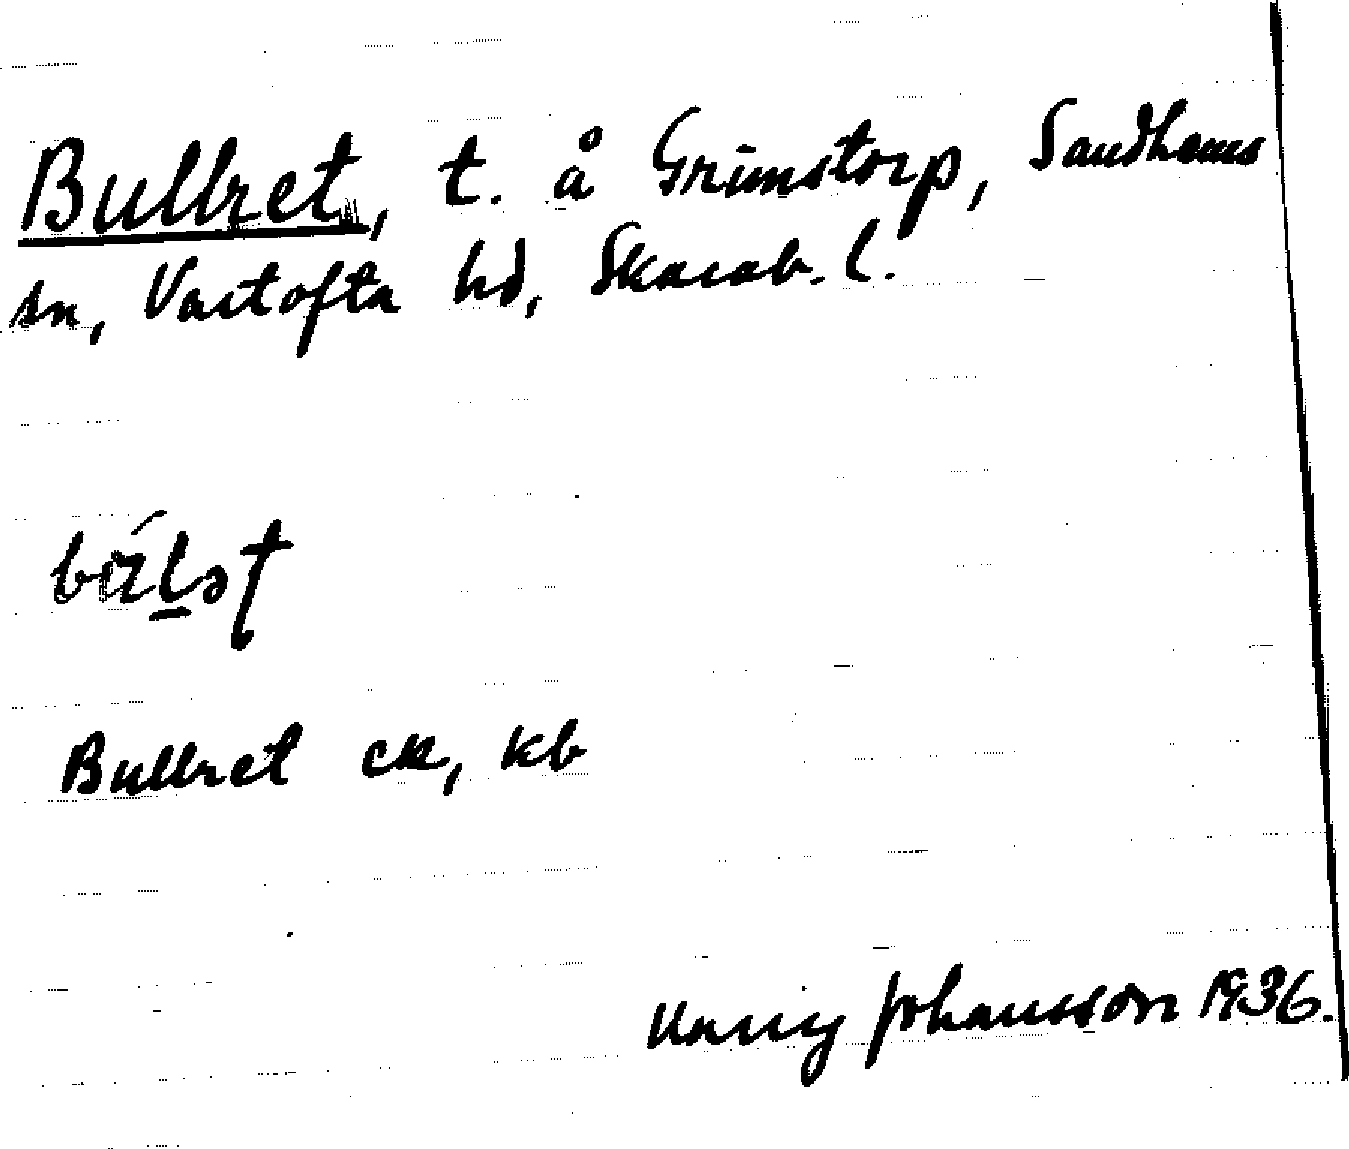 Bullret, t. å Grimstorp, Sandhems
sn, Vartofta hd, Skarab. l.
Bullret ek, kb
Harry Johansson 1936.